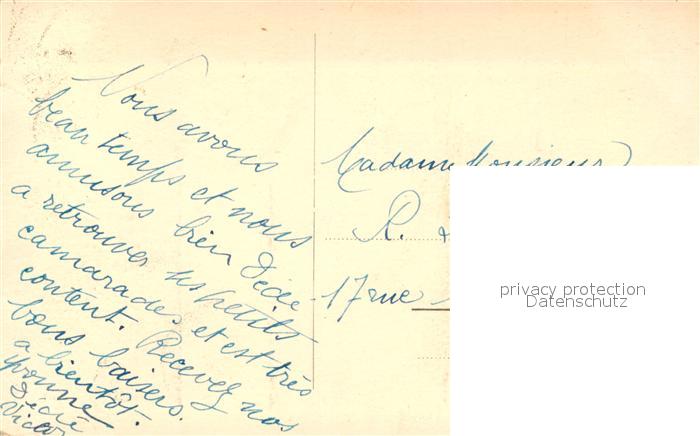 Nous avons
beau temps et nous
amusons bien Dédée
a retrouver ses petits
camarades et est très
content. Recevez nos
bons baisers.
a bientôt.
Yvonne
Victor
Madame Monsieur
R. &
17 rue
privacy protection
Datenschutz